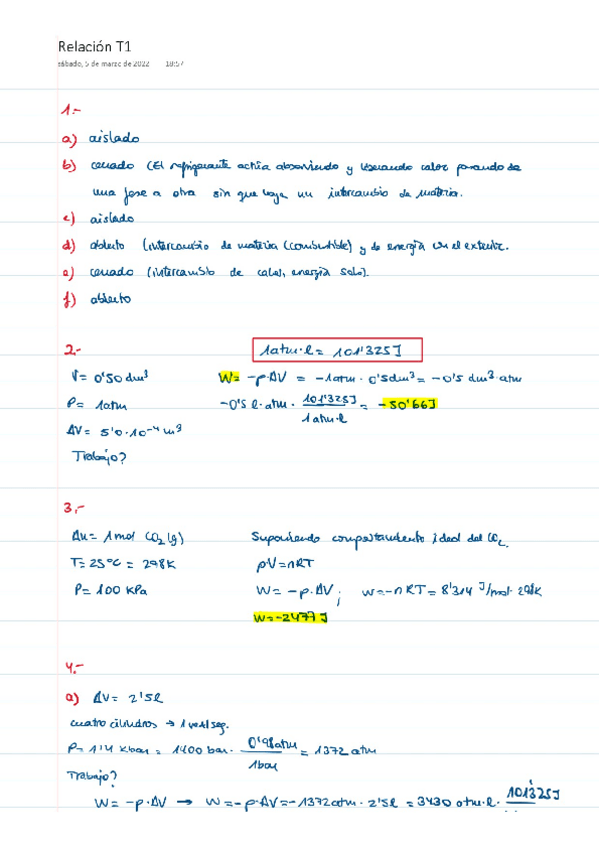 Relación T1
sábado, 5 de marzo de 2022 18:57
1.-
a) aislado
b) cerrado (El refrigerante actúa absorviendo y liberando calor pasando de
una fase a otra sin que haya un intercambio de materia.
c) aislado
d) abierto (intercambio de materia (combustible) y de energía con el exterior.
e) cerrado (intercambio de calor, energía solo).
f) abierto
2.-
1atm·l = 101'325J
V = 0'50 dm³ W = -p·ΔV = -1atm · 0'5dm³ = -0'5 dm³·atm
P = 1atm -0'5 l·atm · 101'325J / 1atm·l = -50'66J
ΔV = 5'0·10⁻⁴ m³
Trabajo?
3.-
Δn = 1mol CO₂(g) Suponiendo comportamiento ideal del CO₂.
T = 25ºC = 298K pV = nRT
P = 100 KPa W = -p·ΔV; W = -nRT = 8'314 J/mol· 298K
W = -2477 J
4.-
a) ΔV = 2'5l
cuatro cilindros → 1 vez/seg.
P = 1'4 kbar = 1400 bar · 0'98atm / 1bar = 1372 atm
Trabajo?
W = -p·ΔV → W = -p·ΔV = -1372atm · 2'5l = 3430 atm·l · 101325J